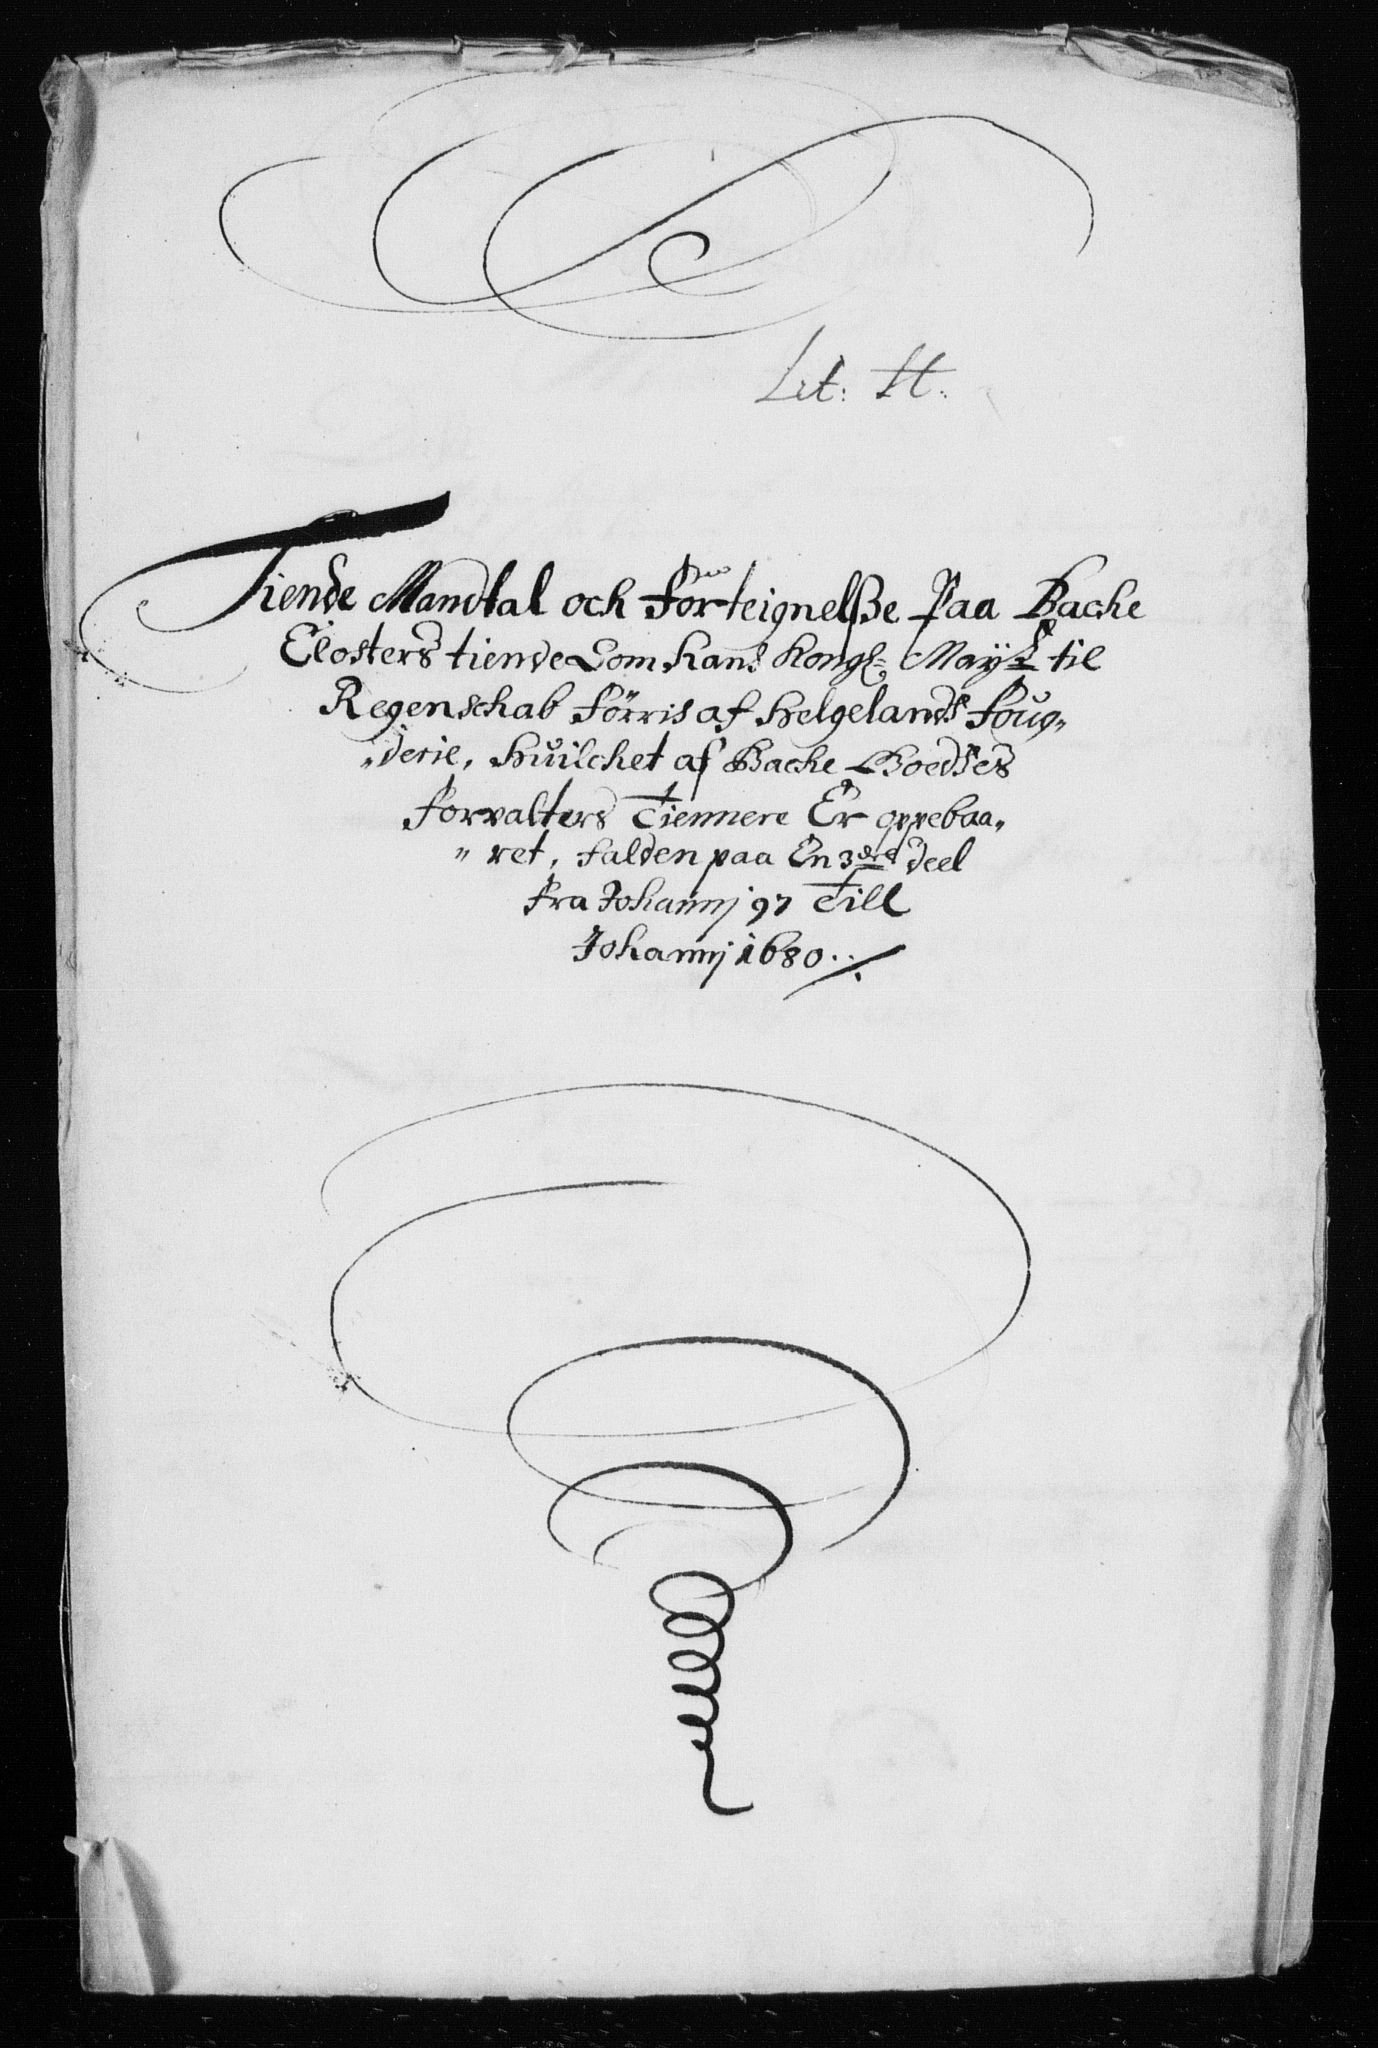 Lit: H.
Tiende Mandtal och forteignelße Paa Bache
Closters tiende Som Hans Kongl: Mayt til
Regenschab förris af Helgelands Foug„
„derie, Huilchet af Bache Goedses
forvalters Tiennere Er oppebaa„
„ret, falden paa En 3die deel
fra Johannj 97 Till
Johannj 1680../.